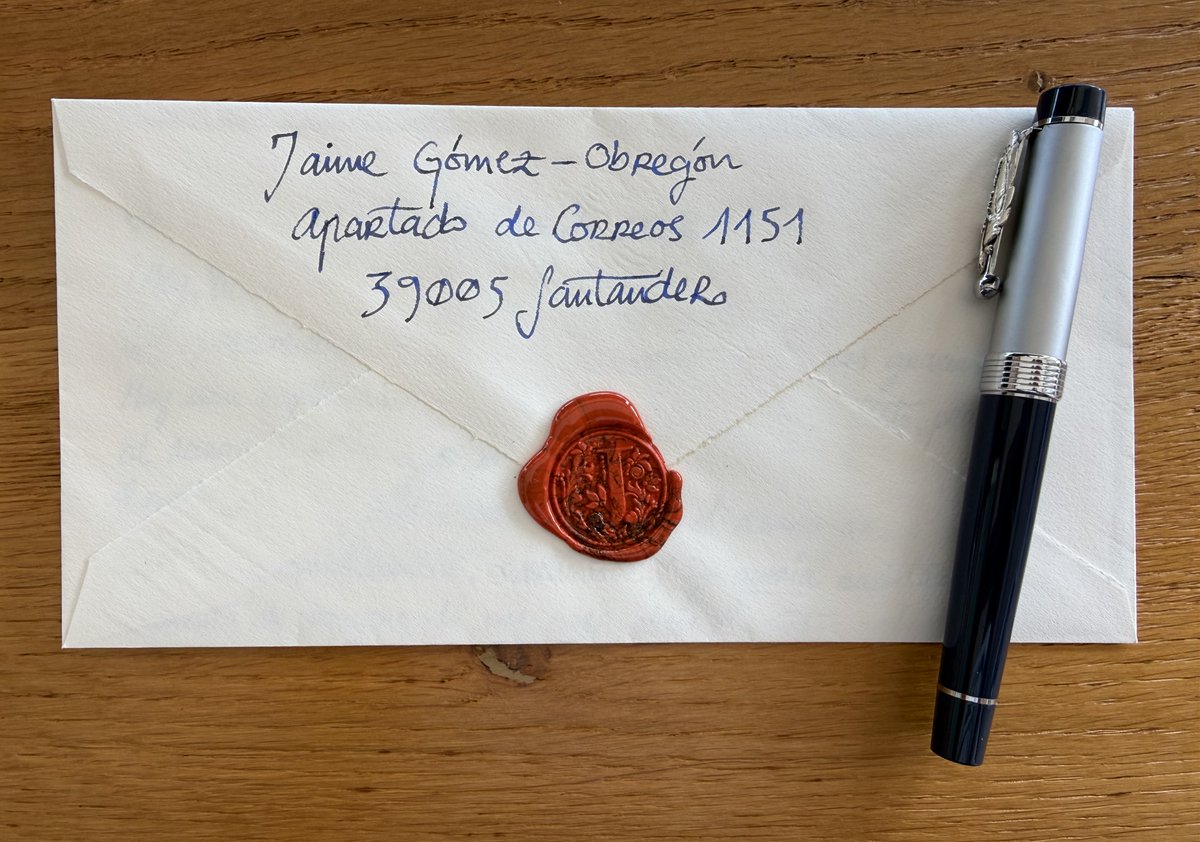 Jaime Gómez-Obregón
Apartado de Correos 1151
39005 Santander